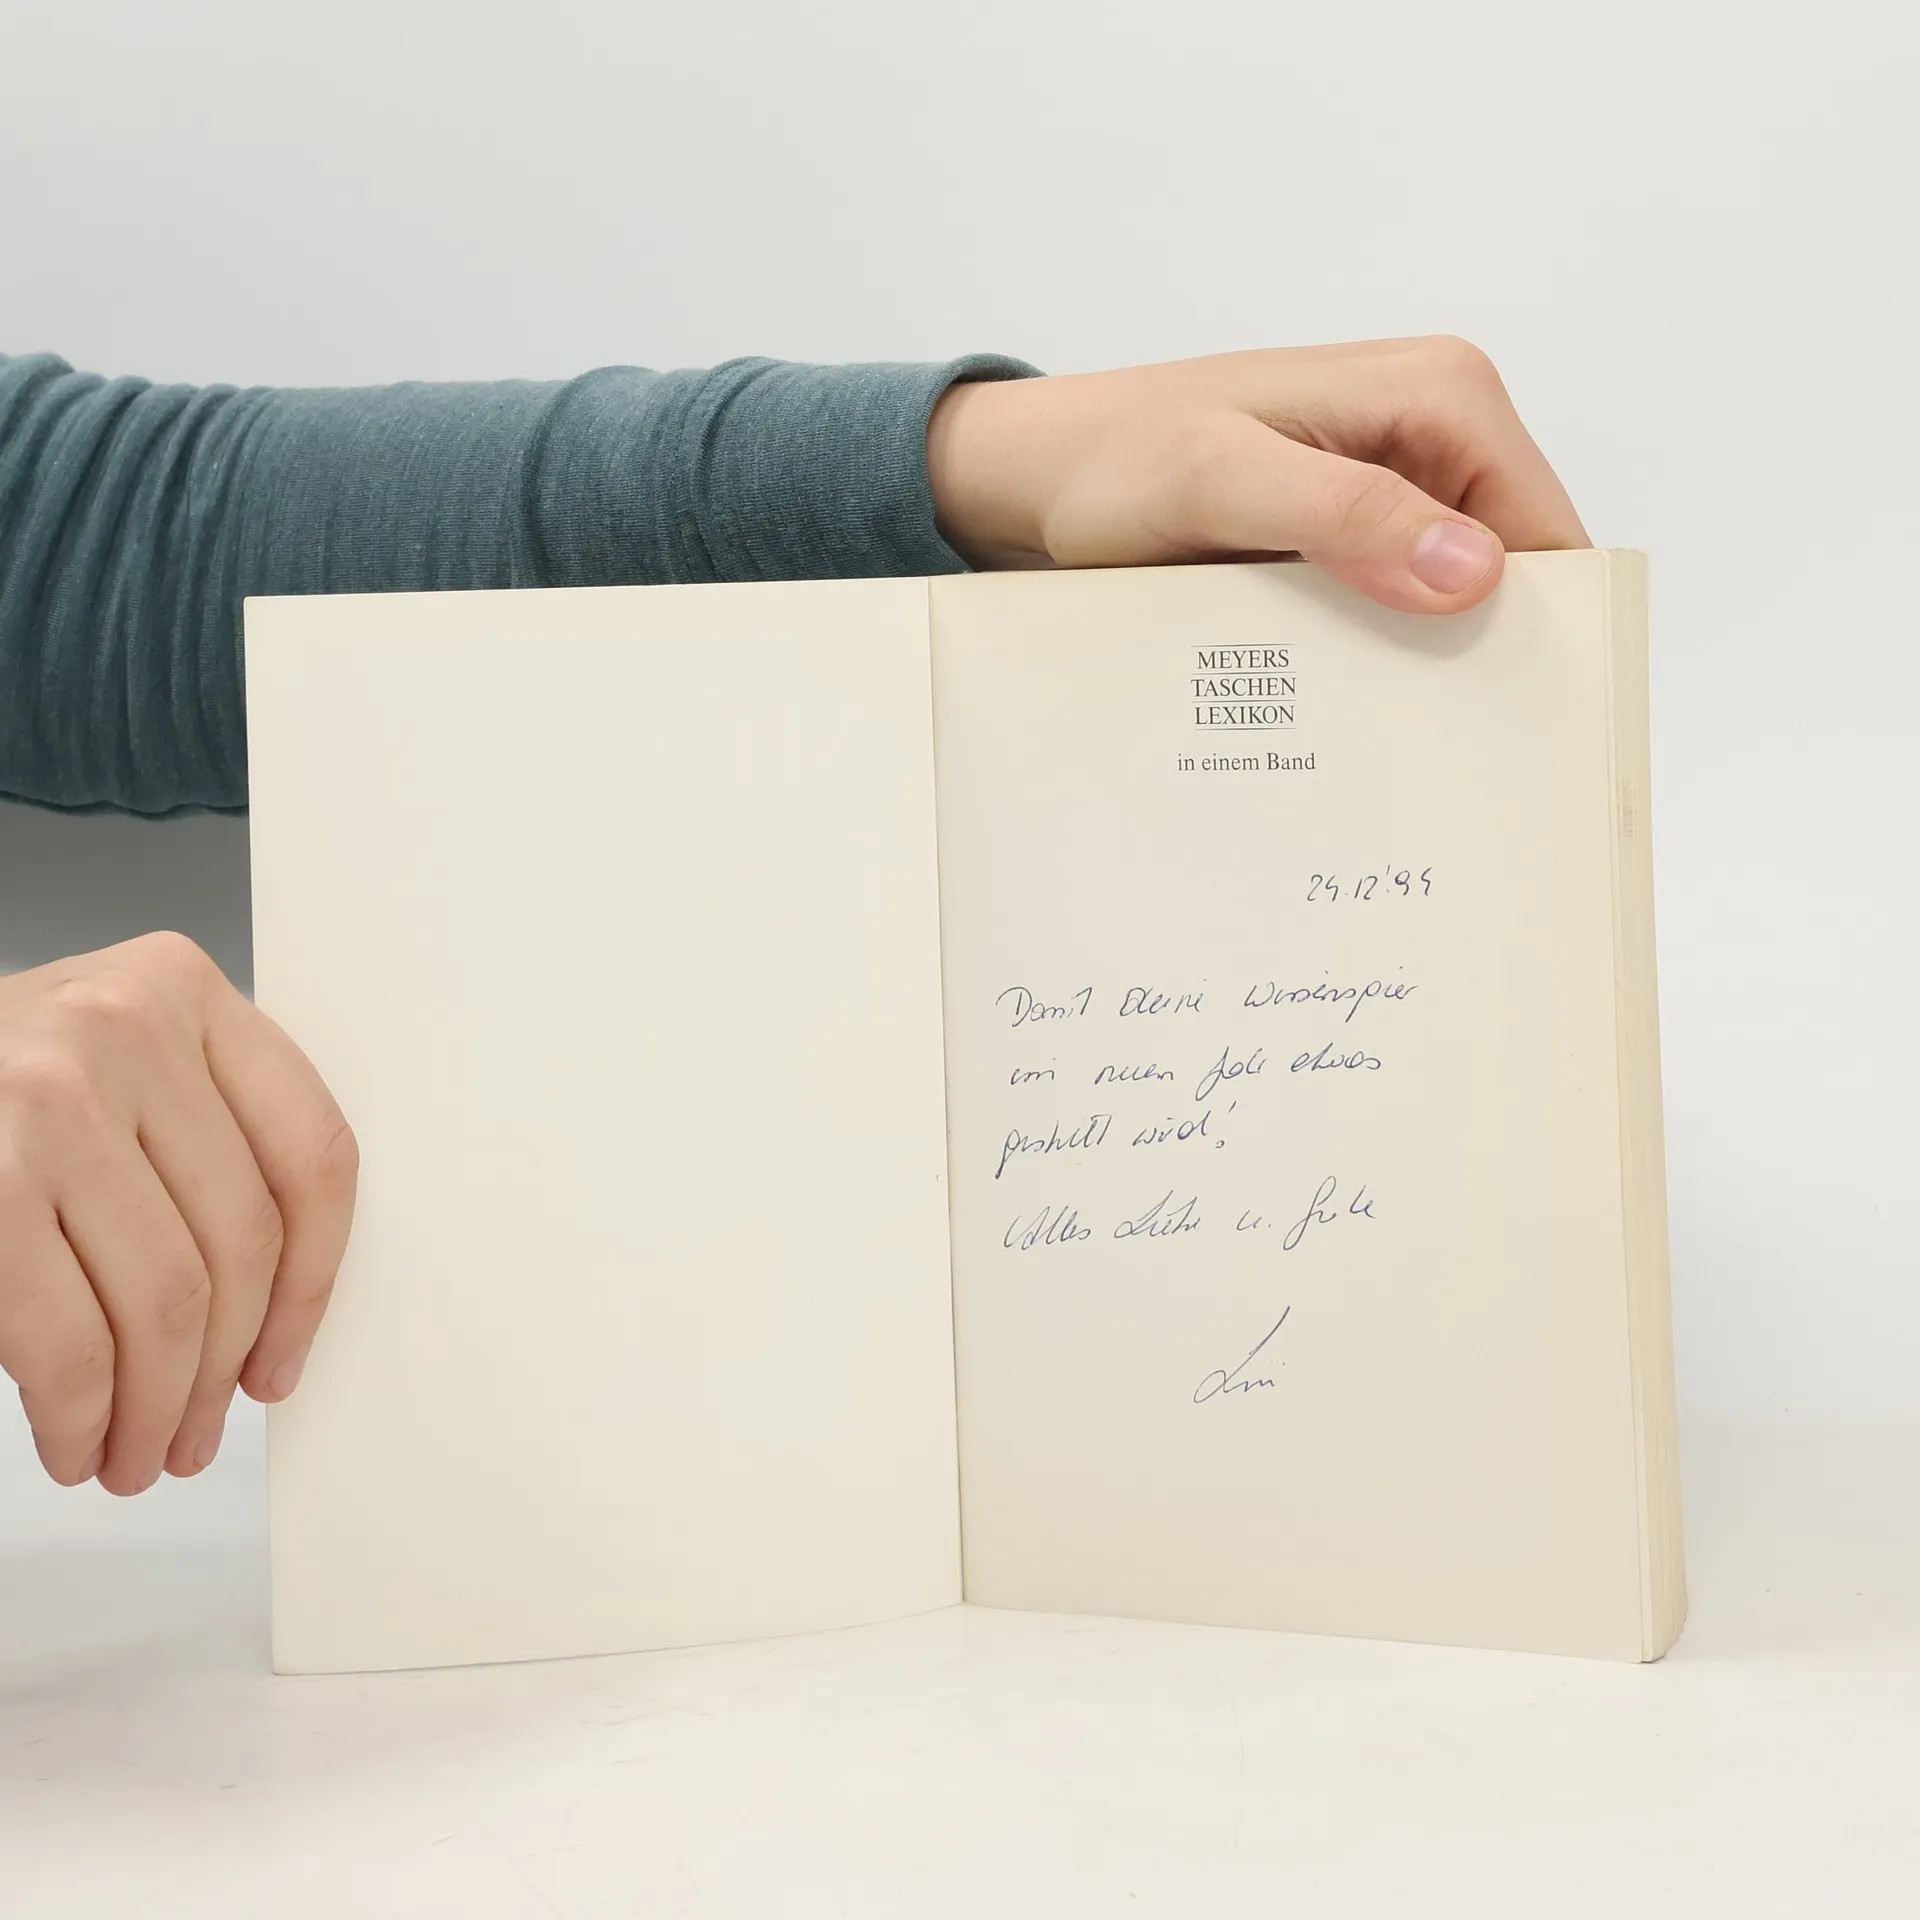 MEYERS
TASCHEN
LEXIKON
in einem Band
24.12.'94
Damit Deine Wissensgier
im neuen Jahr etwas
gestillt wird!
Alles Liebe u. Gute